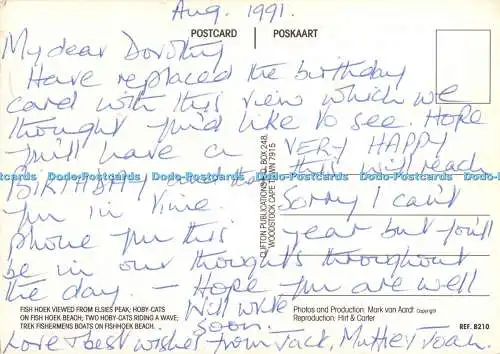 Aug. 1991.
POSTCARD POSKAART
My dear Dorothy
Have replaced the birthday
card with this view which we
thought you'd like to see. Hope
you'll have a VERY HAPPY
BIRTHDAY and that this will reach
you in time. Sorry I can't
phone you this year but you'll
be in our thoughts throughout
the day - Hope you are well
Will write
soon.
Love & best wishes from Jack, Muttley Joan.
CLIFTON PUBLICATIONS P.O. BOX 248,
WOODSTOCK CAPE TOWN 7915
Dodo-Postcards Dodo-Postcards Dodo-Postcards Dodo-Postcards Dodo-Postcards
FISH HOEK VIEWED FROM ELSIES PEAK; HOBY-CATS
ON FISH HOEK BEACH; TWO HOBY-CATS RIDING A WAVE;
TREK FISHERMENS BOATS ON FISHHOEK BEACH.
Photos and Production: Mark van Aardt Copyright
Reproduction: Hirt & Carter
REF. B210